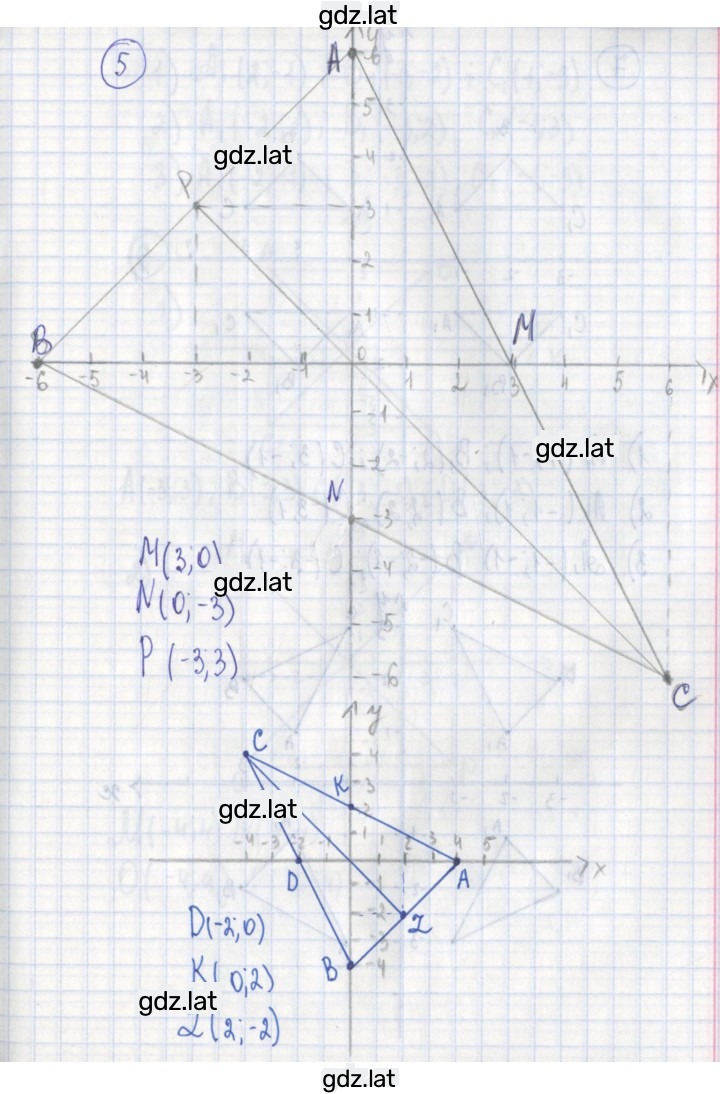 gdz.lat
5
A
y
6
5
gdz.lat
-4
P
-3
-2
-1
B
M
0
-6 -5 -4 -3 -2 -1 1 2 3 4 5 6 x
-1
gdz.lat
-2
N
-3
M(3;0)
-4
gdz.lat
N(0;-3)
-5
P(-3;3)
-6
C
y
C
4
K
3
gdz.lat
2
1
-4 -3 -2 -1 1 2 3 4 5
x
D
A
-2
L
D(-2;0)
-3
B
-4
K(0;2)
gdz.lat
L(2;-2)
gdz.lat